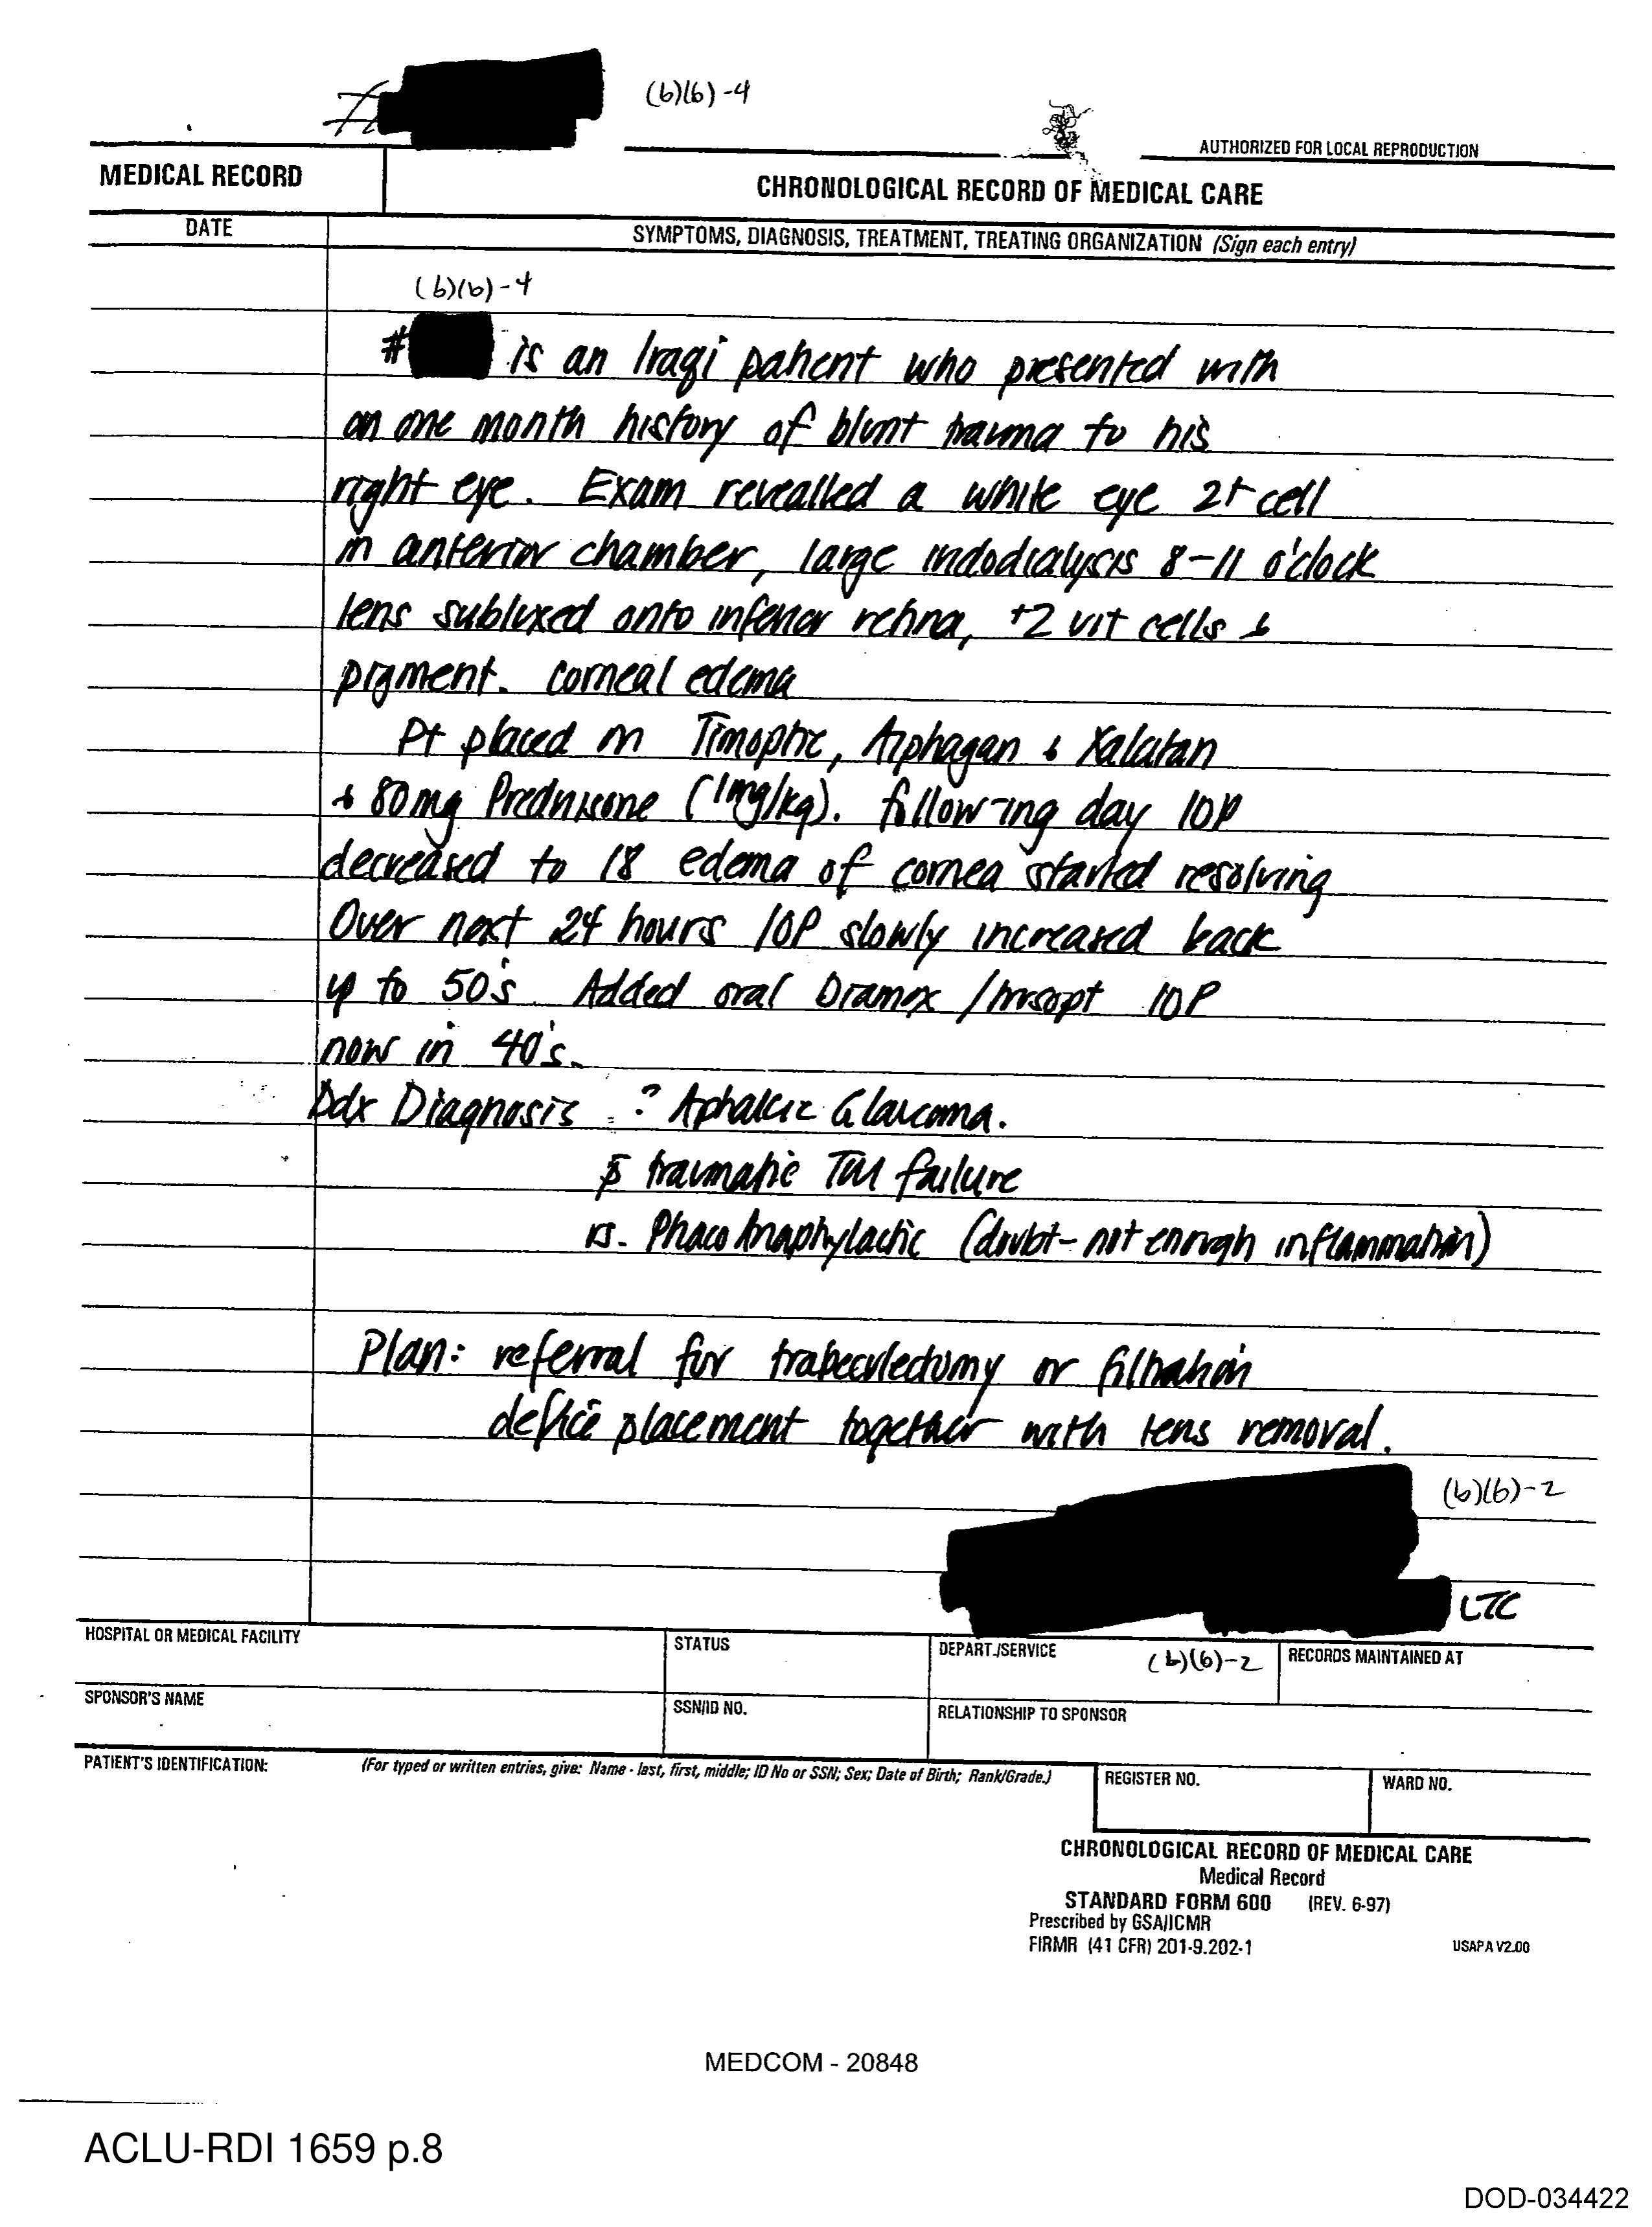 (b)(6)-4
AUTHORIZED FOR LOCAL REPRODUCTION
MEDICAL RECORD
CHRONOLOGICAL RECORD OF MEDICAL CARE
DATE
SYMPTOMS, DIAGNOSIS, TREATMENT, TREATING ORGANIZATION (Sign each entry)
(b)(6)-4
# is an Iraqi patient who presented with
an one month history of blunt trauma to his
right eye. Exam revealled a white eye 2+ cell
in anterior chamber, large iridodialysis 8-11 o'clock
lens subluxed onto inferior retina, +2 vit cells &
pigment. corneal edema
Pt placed on Timoptic, Alphagan & Xalatan
& 80mg Prednisone (1mg/kg). following day IOP
decreased to 18 edema of cornea started resolving
Over next 24 hours IOP slowly increased back
up to 50's. Added oral Diamox / Trusopt IOP
now in 40's.
Ddx Diagnosis : ? Aphakic Glaucoma.
traumatic TM failure
vs. Phaco Anaphylactic (doubt - not enough inflammation)
Plan: referral for trabeculectomy or filtration
device placement together with lens removal.
(b)(6)-2
LTC
HOSPITAL OR MEDICAL FACILITY
STATUS
DEPART./SERVICE
(b)(6)-2
RECORDS MAINTAINED AT
SPONSOR'S NAME
SSN/ID NO.
RELATIONSHIP TO SPONSOR
PATIENT'S IDENTIFICATION:
(For typed or written entries, give: Name - last, first, middle; ID No or SSN; Sex; Date of Birth; Rank/Grade.)
REGISTER NO.
WARD NO.
CHRONOLOGICAL RECORD OF MEDICAL CARE
Medical Record
STANDARD FORM 600 (REV. 6-97)
Prescribed by GSA/ICMR
FIRMR (41 CFR) 201-9.202-1
USAPA V2.00
MEDCOM - 20848
ACLU-RDI 1659 p.8
DOD-034422